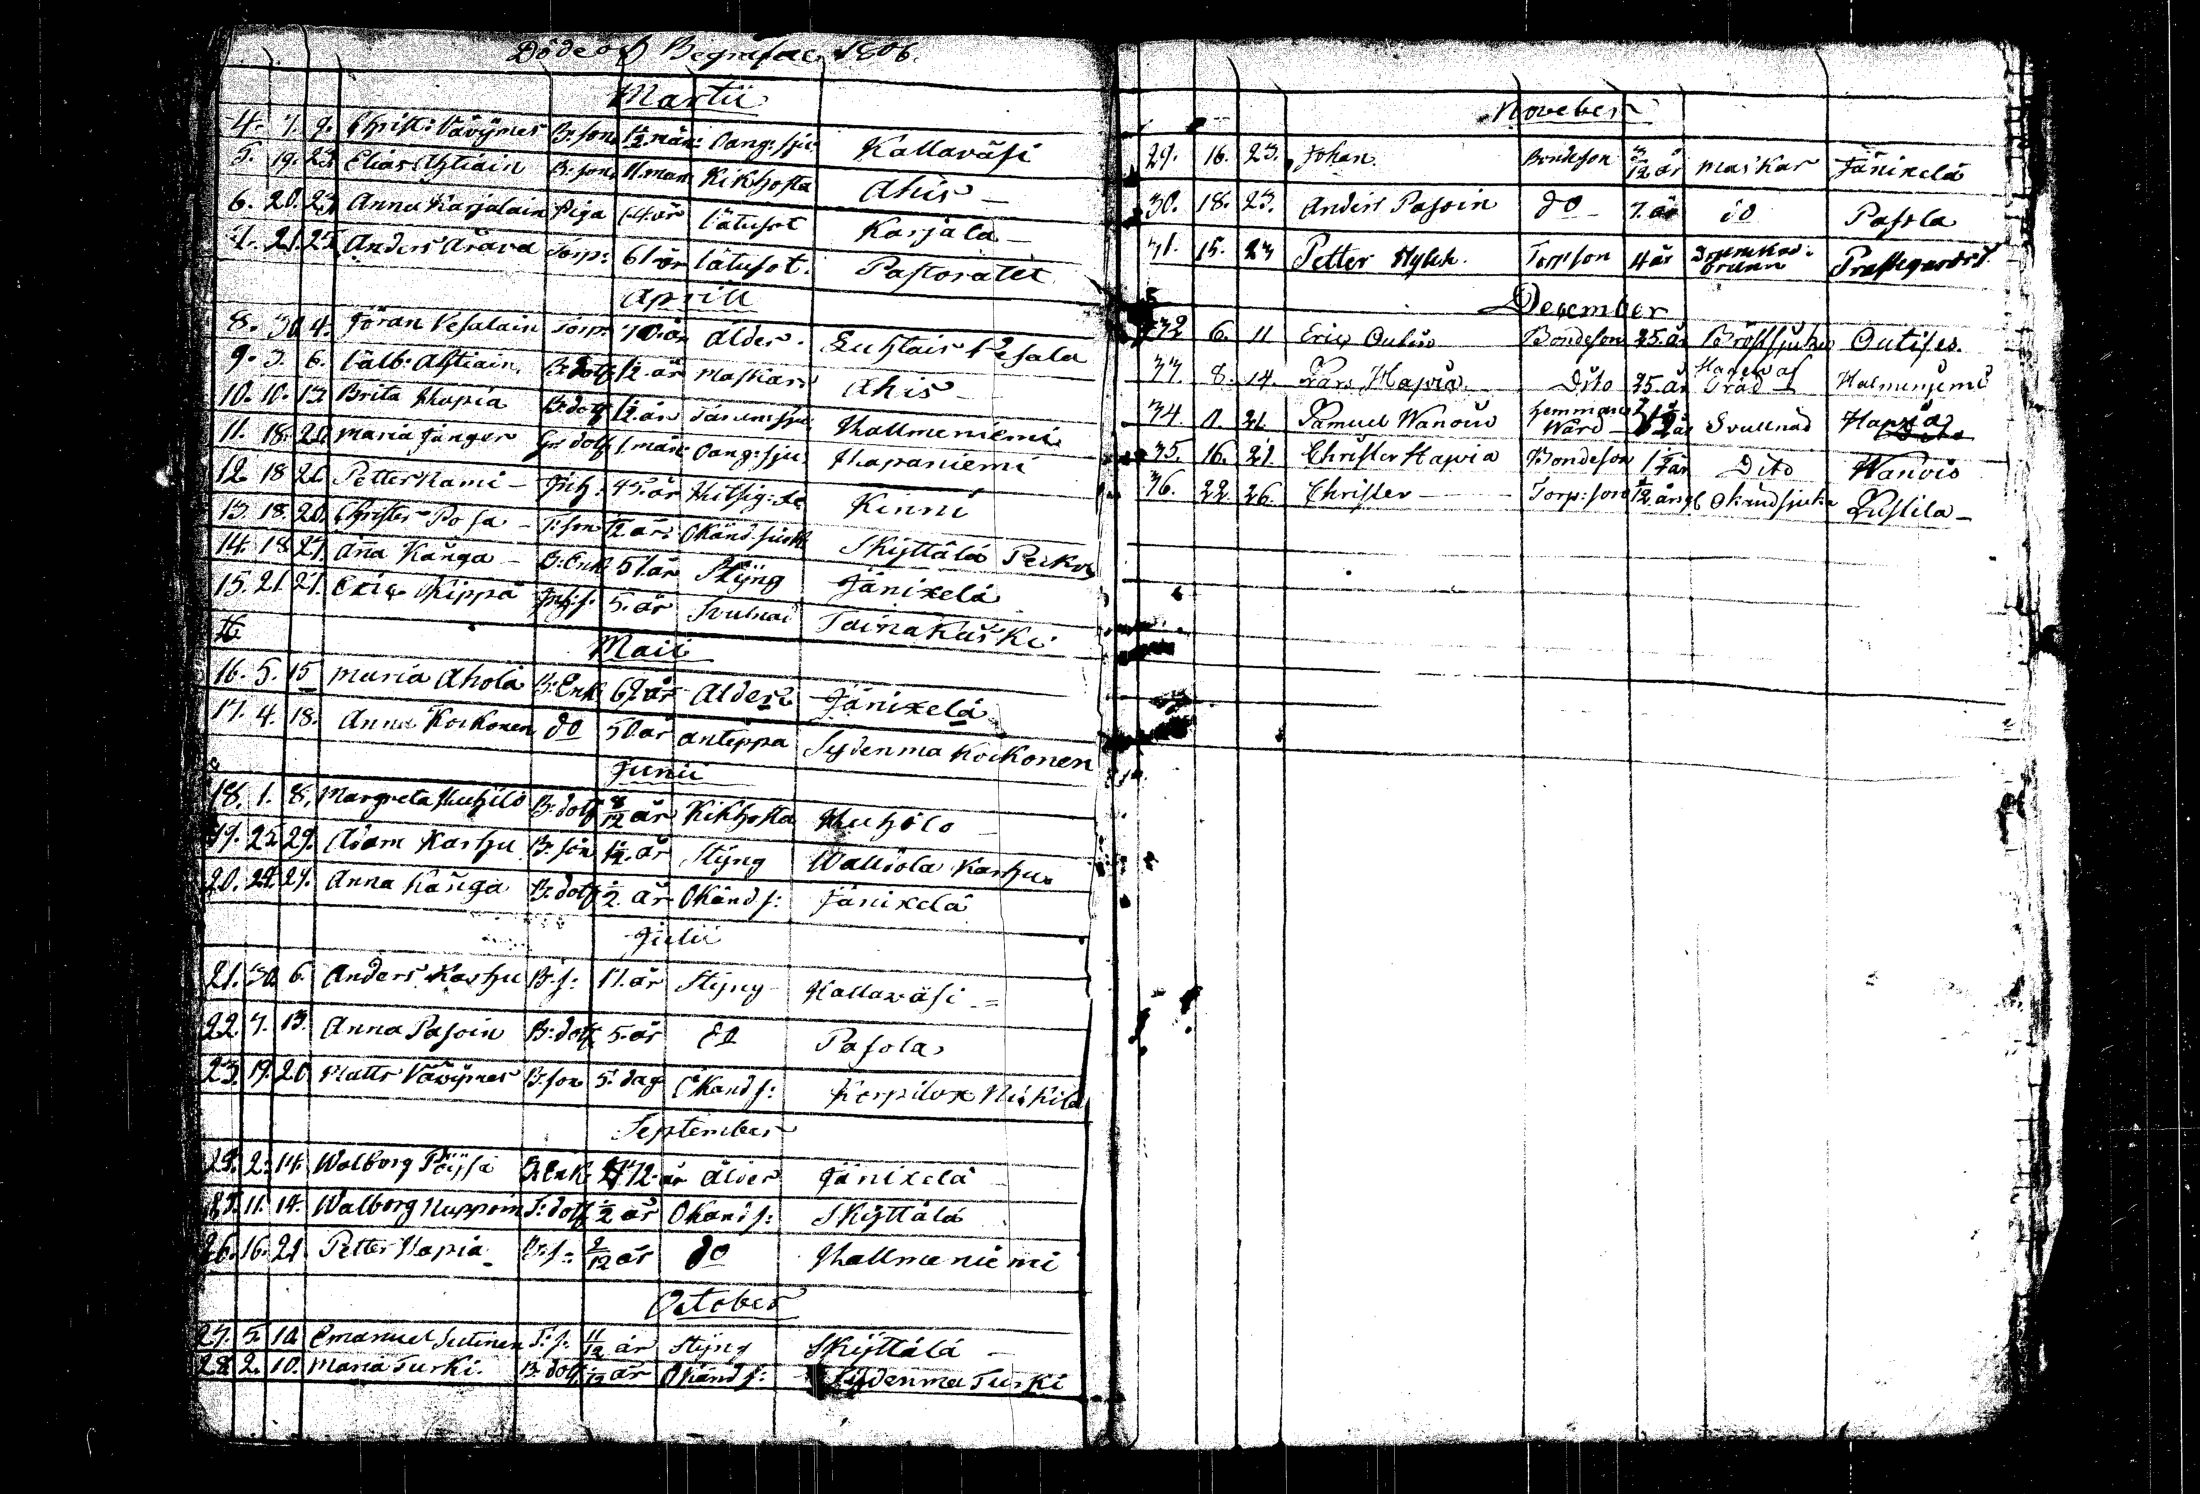 Döde och Begrafne 1806.
Martii
4. 7. 9. Christ: Väyrynes B:son 1/2 mån: Oang: sju: Kallaväsi
5. 19. 23. Elias Ahtiain B:son 11. mån Kikhosta Ahis
6. 20. 23. Anna Karjalain Piga 64 år låtusot Karjala
7. 21. 25. Anders Arava Torp: 61 år låtusot. Pastoratet
Aprill
8. 30. 4. Jöran Vesalain Torp: 70 år Ålder. Vesala
9. 3. 6. Valb: Ahtiain B:dott 1/2 år Maskar Ahis
10. 10. 13 Brita Hapia B:dott 1/2 år Hallmeniemi
11. 18. 20 Maria Jänger dott 1. mån: Oang: sju Hapaniemi
12. 18 20. Petter Kami Inh: 45. år Hitsig: Kinni
13. 18. 20. Christer Posa T:son 1/2 år Okänd sjukd Skÿttälä
14. 18. 21. Aña Kaŭga B:Enk 51. år Stÿng Jänixelä
15. 21. 21. Eric Kippä Inh: s: 5. år Svulnad Tainakuski
Maii
16. 5. 15 Maria Ahola B:Enk 69 år Ålder Jänixelä
17. 4. 18. Anna Koikonen do 50 år anteppa Sydenma Koikonen
Junii
18. 1. 8. Margreta Huhilo B:dott 8/12 år Kikhosta Huhilo
19. 25. 29. Adam Karhu B:son 1/2. år Stÿng Walliola Karhu
20. 22. 27. Anna Kaŭga B:dott 1/2. år Okänd s: Jänixelä
Julii
21. 30. 6. Anders Karhu B:s: 11. år Stÿng Hallawäsi
22. 7. 13. Anna Pasoin B:dott 5. år do Pasola
23. 19. 20 Matts Väyrynes B:son 5. dag Okänd s: Niskila
September
24. 2. 14. Walborg B:Enk 72. år ålder Jänixelä
25. 11. 14. Walborg Huppoin T:dott 1/2 år Okänd s: Skÿttälä
26. 16. 21. Petter Hapia B:s: 9/12 år do Hallmeniemi
October
27. 5. 10. Emanuel Sutinen T:s. 11/12 år Stÿng Skÿttälä
28. 2. 10. Maria Turki. B:dott år Okänd s: Sydenma Turki
November
29. 16. 23. Johan Bondeson 3/12 år Maskar Jänixelä
30. 18. 23. Anders Pasoin do 7. år do Pasola
31. 15. 23 Petter Torp: son 4 år Prestegardst.
December
32 6. 11 Eric Bondeson 25. år Bröstsjuka
33. 8. 14. Lars Hapia Dito 25. år Halmeniemi
34. 21. Samuel Wanoin Svullnad Hapia
35. 16. 21. Christer Hapia Bondeson 1/2 år Dito Wanois
36. 22. 26. Christer Torp: son /12 år Okänd sjuka